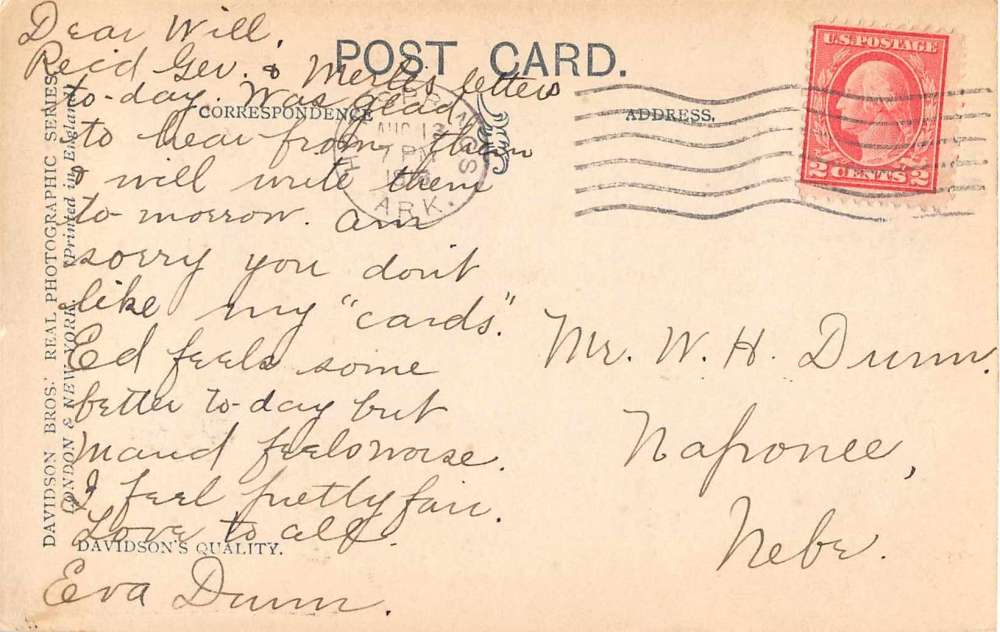 POST CARD.
CORRESPONDENCE
ADDRESS.
Dear Will,
Rec'd Gev. & Merles letters
to-day. Was glad
to hear from them
& will write them
to-morrow. Am
sorry you don't
like my "cards".
Ed feels some
better to-day but
Maud feels worse.
I feel pretty fair.
Love to all.
Eva Dunn.
Mr. W. H. Dunn.
Naponee,
Nebr.
U.S. POSTAGE
2 CENTS 2
AUG 13
7 PM
ARK.
DAVIDSON BROS.' REAL PHOTOGRAPHIC SERIES.
LONDON & NEW YORK. (Printed in England)
DAVIDSON'S QUALITY.